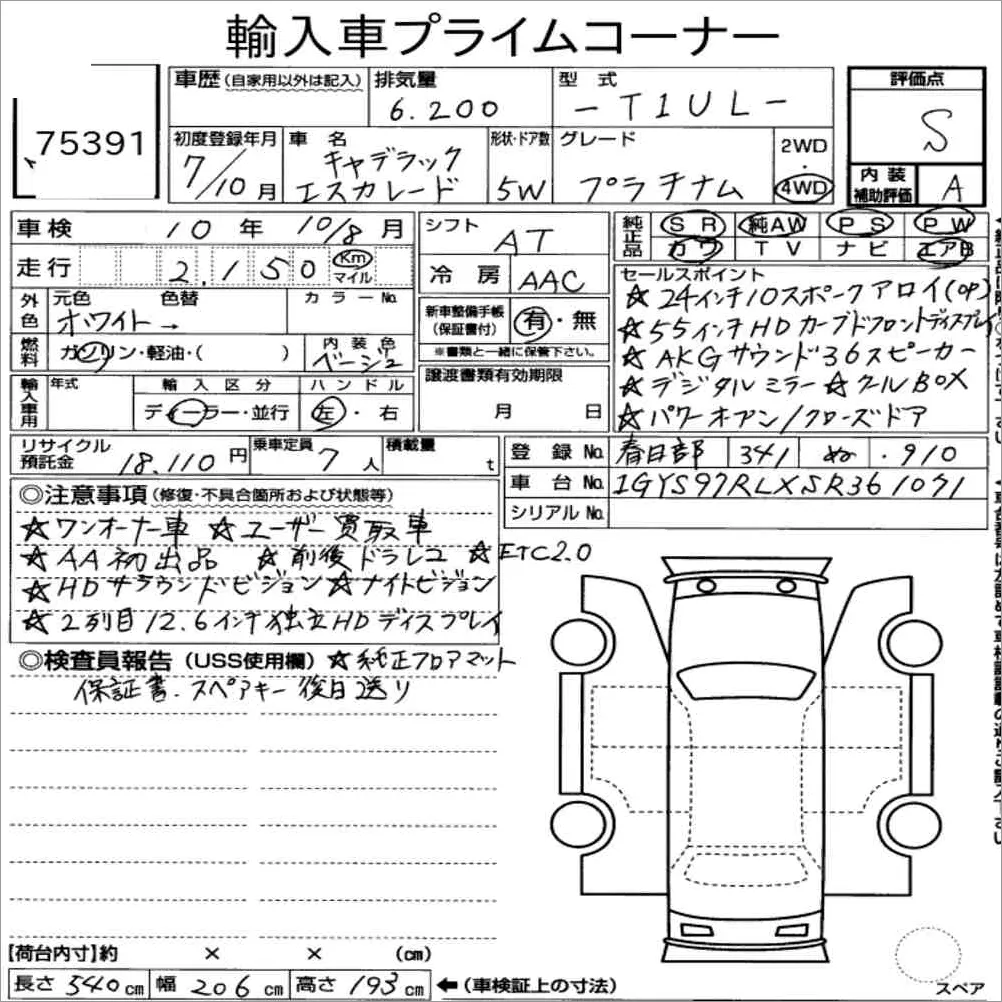 輸入車プライムコーナー
75391
車歴(自家用以外は記入)
排気量
6.200
型式
-T1UL-
評価点
S
初度登録年月
7/10月
車名
キャデラック
エスカレード
形状・ドア数
5W
グレード
プラチナム
2WD
・
4WD
内装
補助評価
A
車検 10年 10/8月
シフト
AT
純正品
SR 純AW PS PW
カワ TV ナビ エアB
走行 2,150 Km マイル
冷房 AAC
セールスポイント
☆24インチ10スポークアロイ(OP)
☆55インチHDカーブドフロントディスプレイ
☆AKGサウンド36スピーカー
☆デジタルミラー☆クールBOX
☆パワーオープン/クローズドア
外色
元色 色替
ホワイト→
カラーNo.
新車整備手帳
(保証書付)
有・無
※書類と一緒に保管下さい。
燃料
ガソリン・軽油・( )
内装色
ベージュ
輸入車用
年式
輸入区分
ディーラー・並行
ハンドル
左・右
譲渡書類有効期限
月 日
リサイクル
預託金
18.110円
乗車定員
7人
積載量
t
登録No. 春日部 341 ぬ ・910
車台No. 1GYS97RLXSR361071
シリアルNo.
◎注意事項(修復・不具合箇所および状態等)
☆ワンオーナー車 ☆ユーザー買取車
☆AA初出品 ☆前後ドラレコ ☆ETC2.0
☆HDサラウンドビジョン☆ナイトビジョン
☆2列目12.6インチ独立HDディスプレイ
◎検査員報告(USS使用欄)☆純正フロアマット
保証書.スペアキー後日送り
【荷台内寸】約 × × (cm)
長さ540cm 幅206cm 高さ193cm ←(車検証上の寸法)
スペア